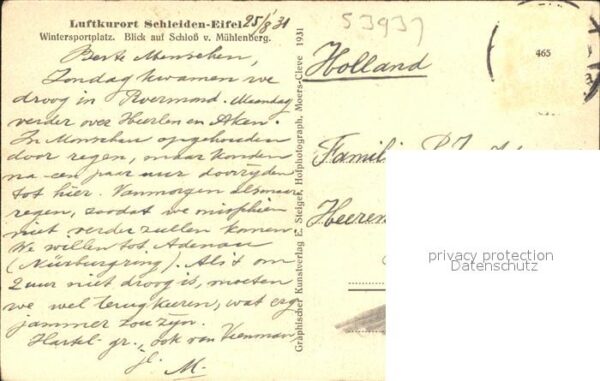 Luftkurort Schleiden-Eifel
Wintersportplatz. Blick auf Schloß v. Mühlenberg.
25/8 31
Beste Menschen,
Zondag kwamen we
droog in Roermond. Maandag
verder over Heerlen en Aken.
In Monschau opgehouden
door regen, maar konden
na een paar uur doorrijden
tot hier. Vanmorgen alsmaar
regen, zoodat we misschien
niet verder zullen komen.
We willen tot Adenau
(Nürburgring). Als it om
2 uur niet droog is, moeten
we wel terugkeeren, wat erg
jammer zou zijn.
Hartel. gr., ook van
M.
Graphischer Kunstverlag E. Steiger, Hofphotograph, Moers-Cleve 1931
53931
465
Holland
Familie
Heeren
privacy protection
Datenschutz